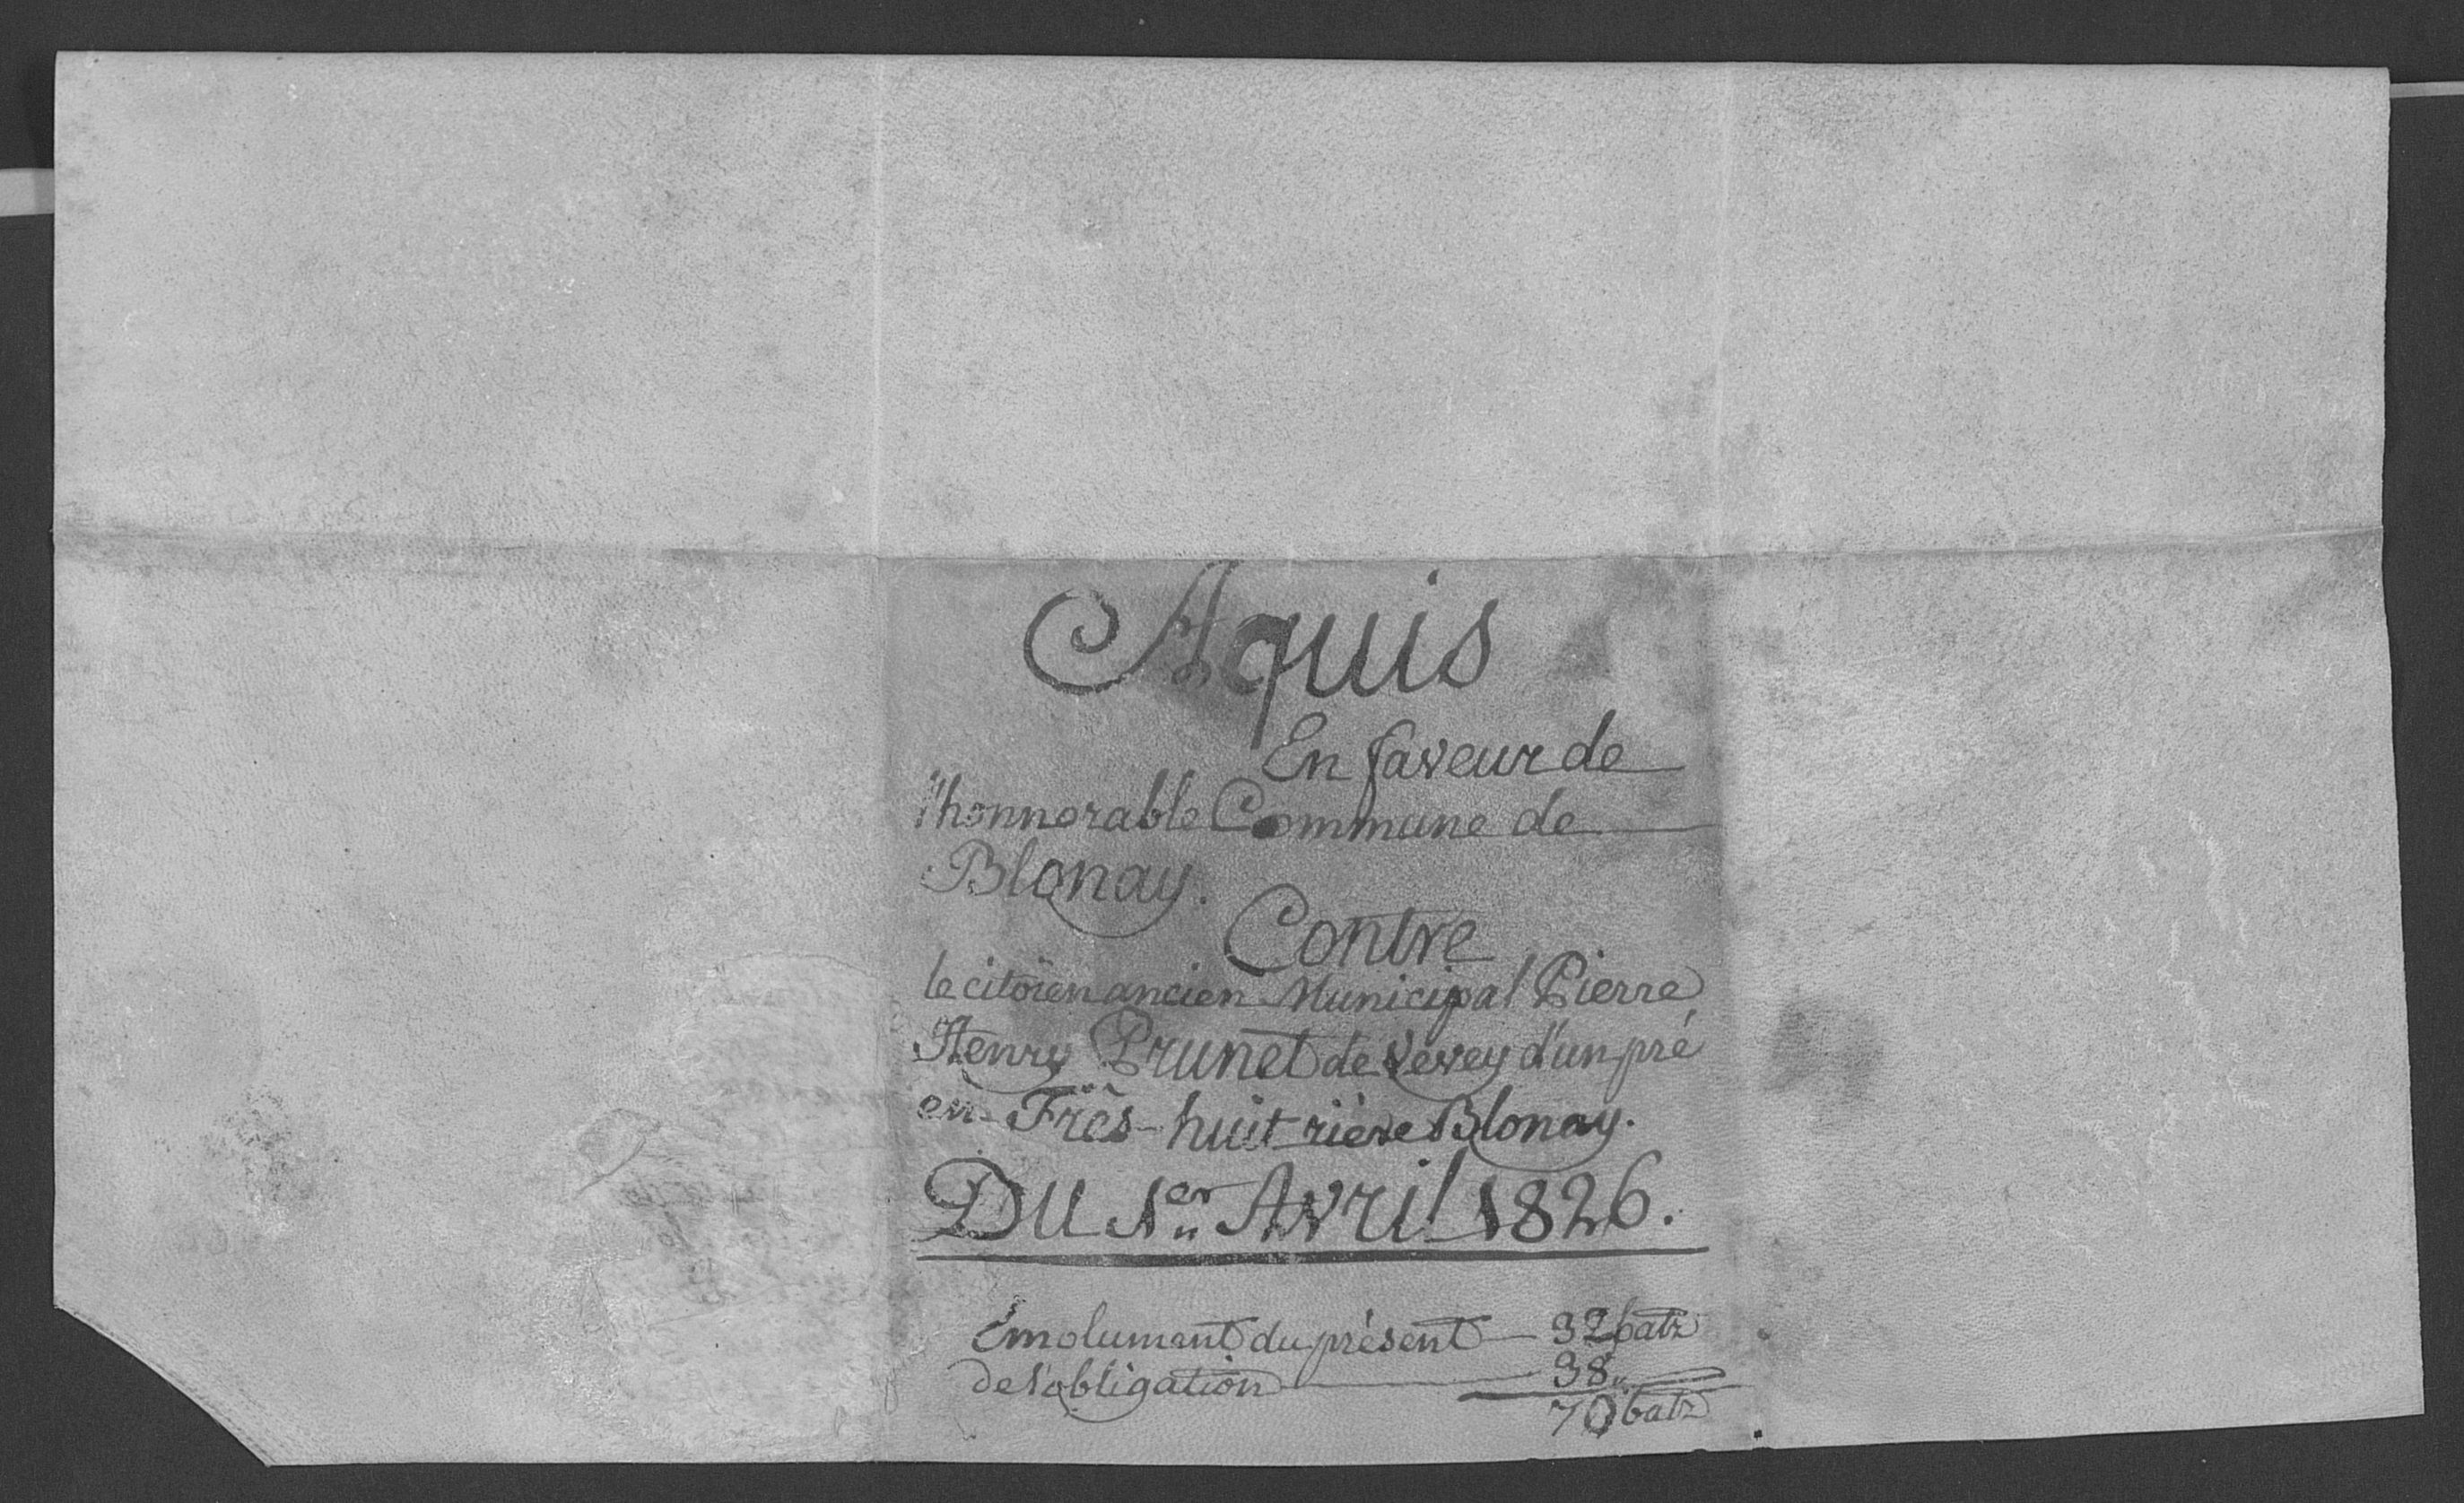 Aquis
En faveur de
l'honnorable Commune de
Blonay.
Contre
le citoïen ancien Municipal Pierre
Henry Prunet de Vevey d'un pré
en Frës-huit rière Blonay.
Du 1er Avril 1826.
Emolument du présent 32 batz
de l'obligation 38 "
70 batz